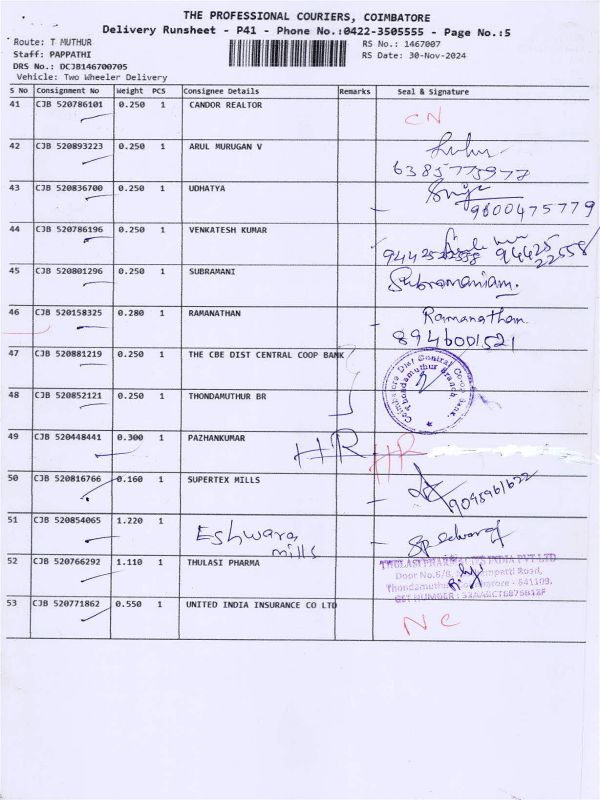 THE PROFESSIONAL COURIERS, COIMBATORE
Delivery Runsheet - P41 - Phone No.:0422-3505555 - Page No.:5
Route: T MUTHUR RS No.: 1467007
Staff: PAPPATHI RS Date: 30-Nov-2024
DRS No.: DCJB146700705
Vehicle: Two Wheeler Delivery
S No Consignment No Weight PCS Consignee Details Remarks Seal & Signature
41 CJB 520786101 0.250 1 CANDOR REALTOR CN
42 CJB 520893223 0.250 1 ARUL MURUGAN V
6385775977
43 CJB 520836700 0.250 1 UDHATYA
9600475779
44 CJB 520786196 0.250 1 VENKATESH KUMAR
94425 22558
45 CJB 520801296 0.250 1 SUBRAMANI Subramaniam.
46 CJB 520158325 0.280 1 RAMANATHAN Ramanathan
8946001521
47 CJB 520881219 0.250 1 THE CBE DIST CENTRAL COOP BANK
Coimbatore Dist Central Coop Bank. Thondamuthur Branch.
48 CJB 520852121 0.250 1 THONDAMUTHUR BR
49 CJB 520448441 0.300 1 PAZHANKUMAR HR HR
50 CJB 520816766 0.160 1 SUPERTEX MILLS
51 CJB 520854065 1.220 1 Eshwara mills
52 CJB 520766292 1.110 1 THULASI PHARMA THULASI PHARM INDIA PVT LTD
Door No.5/8, Road,
641109.
GST NUMBER :
53 CJB 520771862 0.550 1 UNITED INDIA INSURANCE CO LTD NC